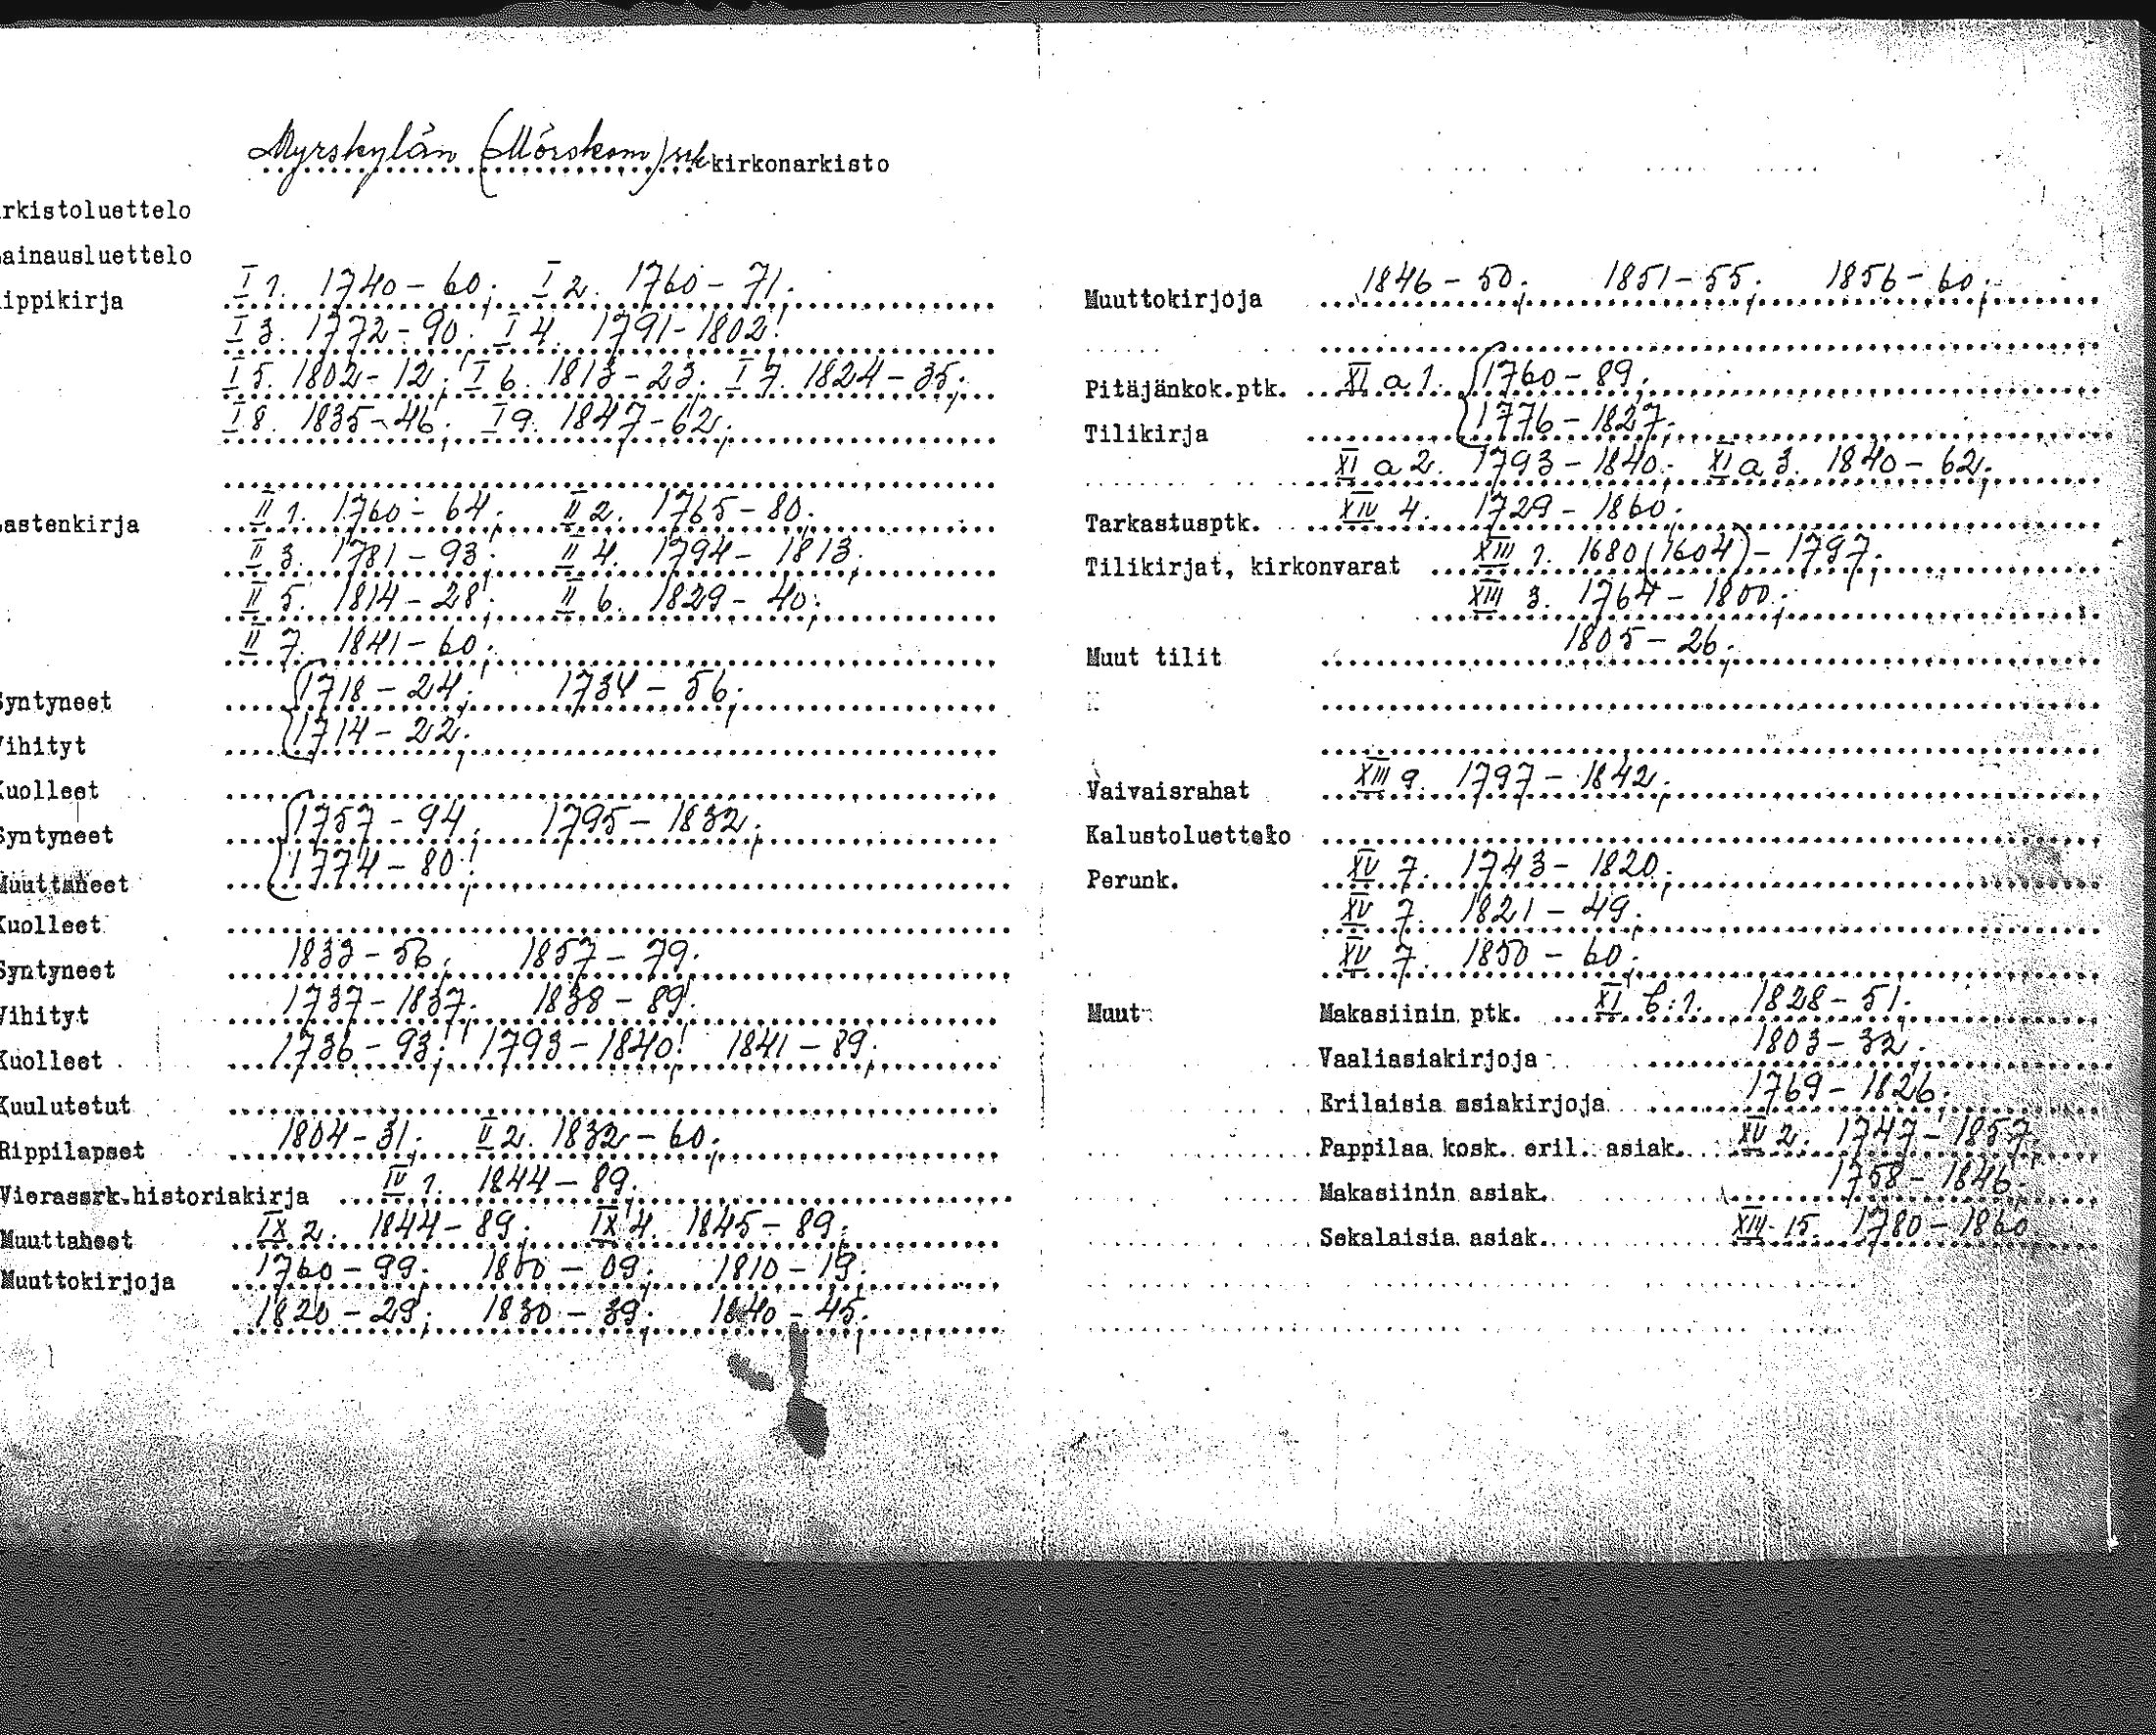 Myrskylän (Mörskom) srk kirkonarkisto
rkistoluettelo
ainausluettelo
ippikirja I 1. 1740-60; I 2. 1760-71;
I 3. 1772-90; I 4. 1791-1802;
I 5. 1802-12; I 6. 1813-23; I 7. 1824-35;
I 8. 1835-46; I 9. 1847-62;
astenkirja II 1. 1760-64; II 2. 1765-80;
II 3. 1781-93; II 4. 1794-1813;
II 5. 1814-28; II 6. 1829-40;
II 7. 1841-60;
Syntyneet 1718-24; 1734-56;
Vihityt 1714-22;
Kuolleet
Syntyneet 1757-94; 1795-1832;
Muuttaneet 1774-80;
Kuolleet
Syntyneet 1833-56; 1857-79;
Vihityt 1737-1837; 1838-89;
Kuolleet 1736-93; 1793-1840; 1841-89;
Kuulutetut
Rippilapset 1804-31; II 2. 1832-60;
Vierassrk.historiakirja IV 1. 1844-89;
Muuttaneet IX 2. 1844-89; IX 4. 1845-89;
Muuttokirjoja 1760-99; 1800-09; 1810-19;
1820-29; 1830-39; 1840-45;
Muuttokirjoja 1846-50; 1851-55; 1856-60;
Pitäjänkok.ptk. XI a 1. 1760-89;
Tilikirja 1776-1827;
XI a 2. 1793-1840; XI a 3. 1840-62;
Tarkastusptk. XIV 4. 1729-1860;
Tilikirjat, kirkonvarat XIII 1. 1680(1604)-1797;
XIII 3. 1764-1800;
Muut tilit 1805-26;
Vaivaisrahat XIII 9. 1797-1842;
Kalustoluettelo
Perunk. XV 7. 1743-1820;
XV 7. 1821-49;
XV 7. 1850-60;
Muut Makasiinin ptk. XI b:1. 1828-51;
Vaaliasiakirjoja 1803-32;
Erilaisia asiakirjoja 1769-1826;
Pappilaa kosk. eril. asiak. XV 2. 1747-1857;
Makasiinin asiak. 1758-1846;
Sekalaisia asiak. XIII 15. 1780-1860